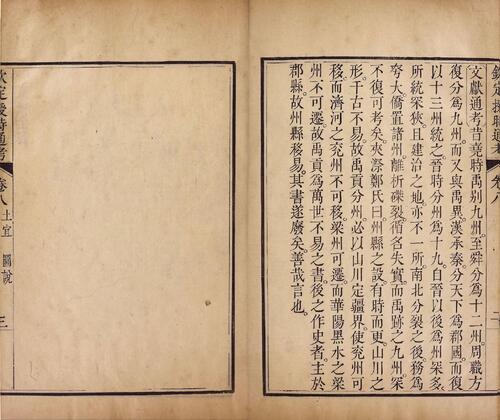 欽定授時通考 卷八
文獻通考昔堯時禹別九州至舜分爲十二州周職方
復分爲九州而又與禹異漢承秦分天下爲郡國而復
以十三州統之晉時分州爲十九自晉以後爲州罙多
所統罙狹且建治之地亦不一所南北分裂之後務爲
夸大僑置諸州離析磔裂循名失實而禹跡之九州罙
不復可考矣夾漈鄭氏曰州縣之設有時而更山川之
形千古不易故禹貢分州必以山川定疆界使兗州可
移而濟河之兗州不可移梁州可遷而華陽黑水之梁
州不可遷故禹貢爲萬世不易之書後之作史者主於
郡縣故州縣移易其書遂廢矣善哉言也
欽定授時通考 卷八 土宜 圖說 三